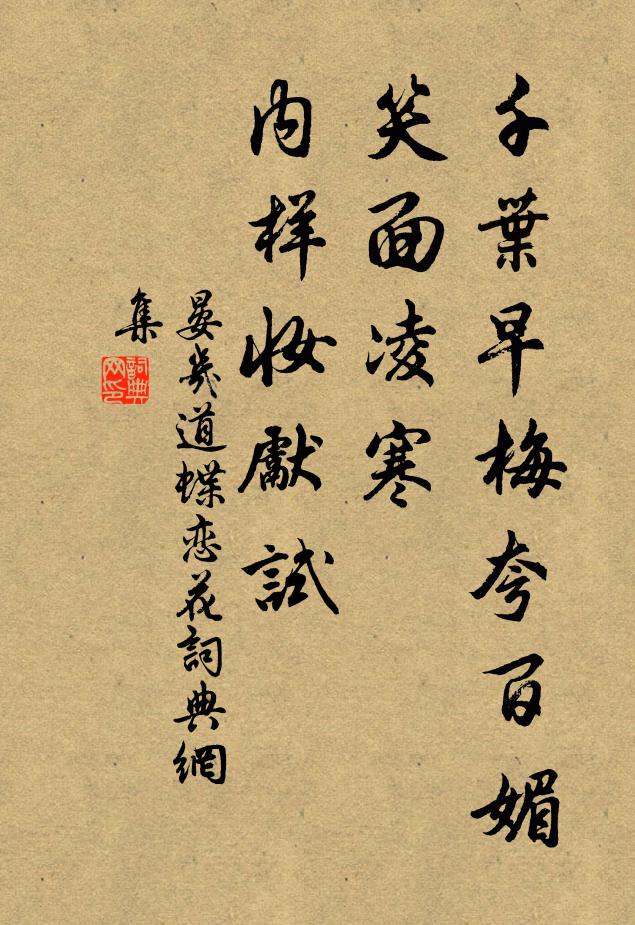 千葉早梅夸百媚
笑面凌寒
内样妝獻試
晏幾道蝶恋花詞典網
集
詞典
网印